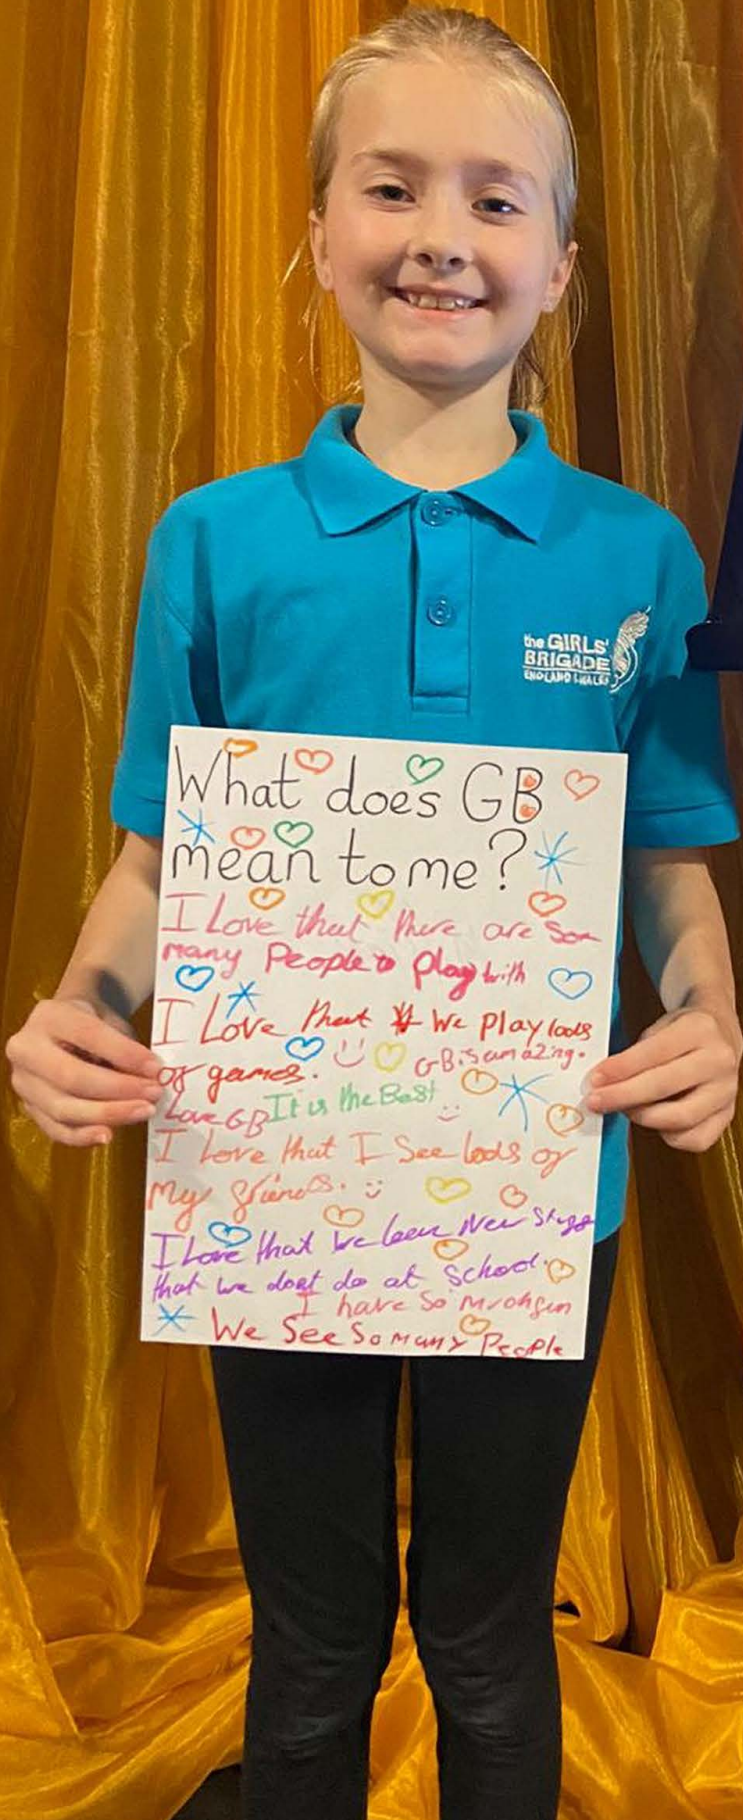 the GIRLS'
BRIGADE
ENGLAND & WALES
What does GB
mean to me?
I Love that there are
many People to play with
I Love that We Play lods
of games.
GB is amazing.
Love GB
It is the Best
I Love that I See lods of
My friends.
I Love that we New
that we dont do at School.
I have so
We See So many People